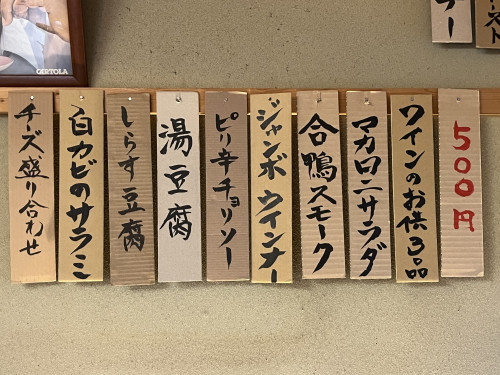 500円
ワインのお供3品
マカロニサラダ
合鴨スモーク
ジャンボウインナー
ピリ辛チョリソー
湯豆腐
しらす豆腐
白カビのサラミ
チーズ盛り合わせ